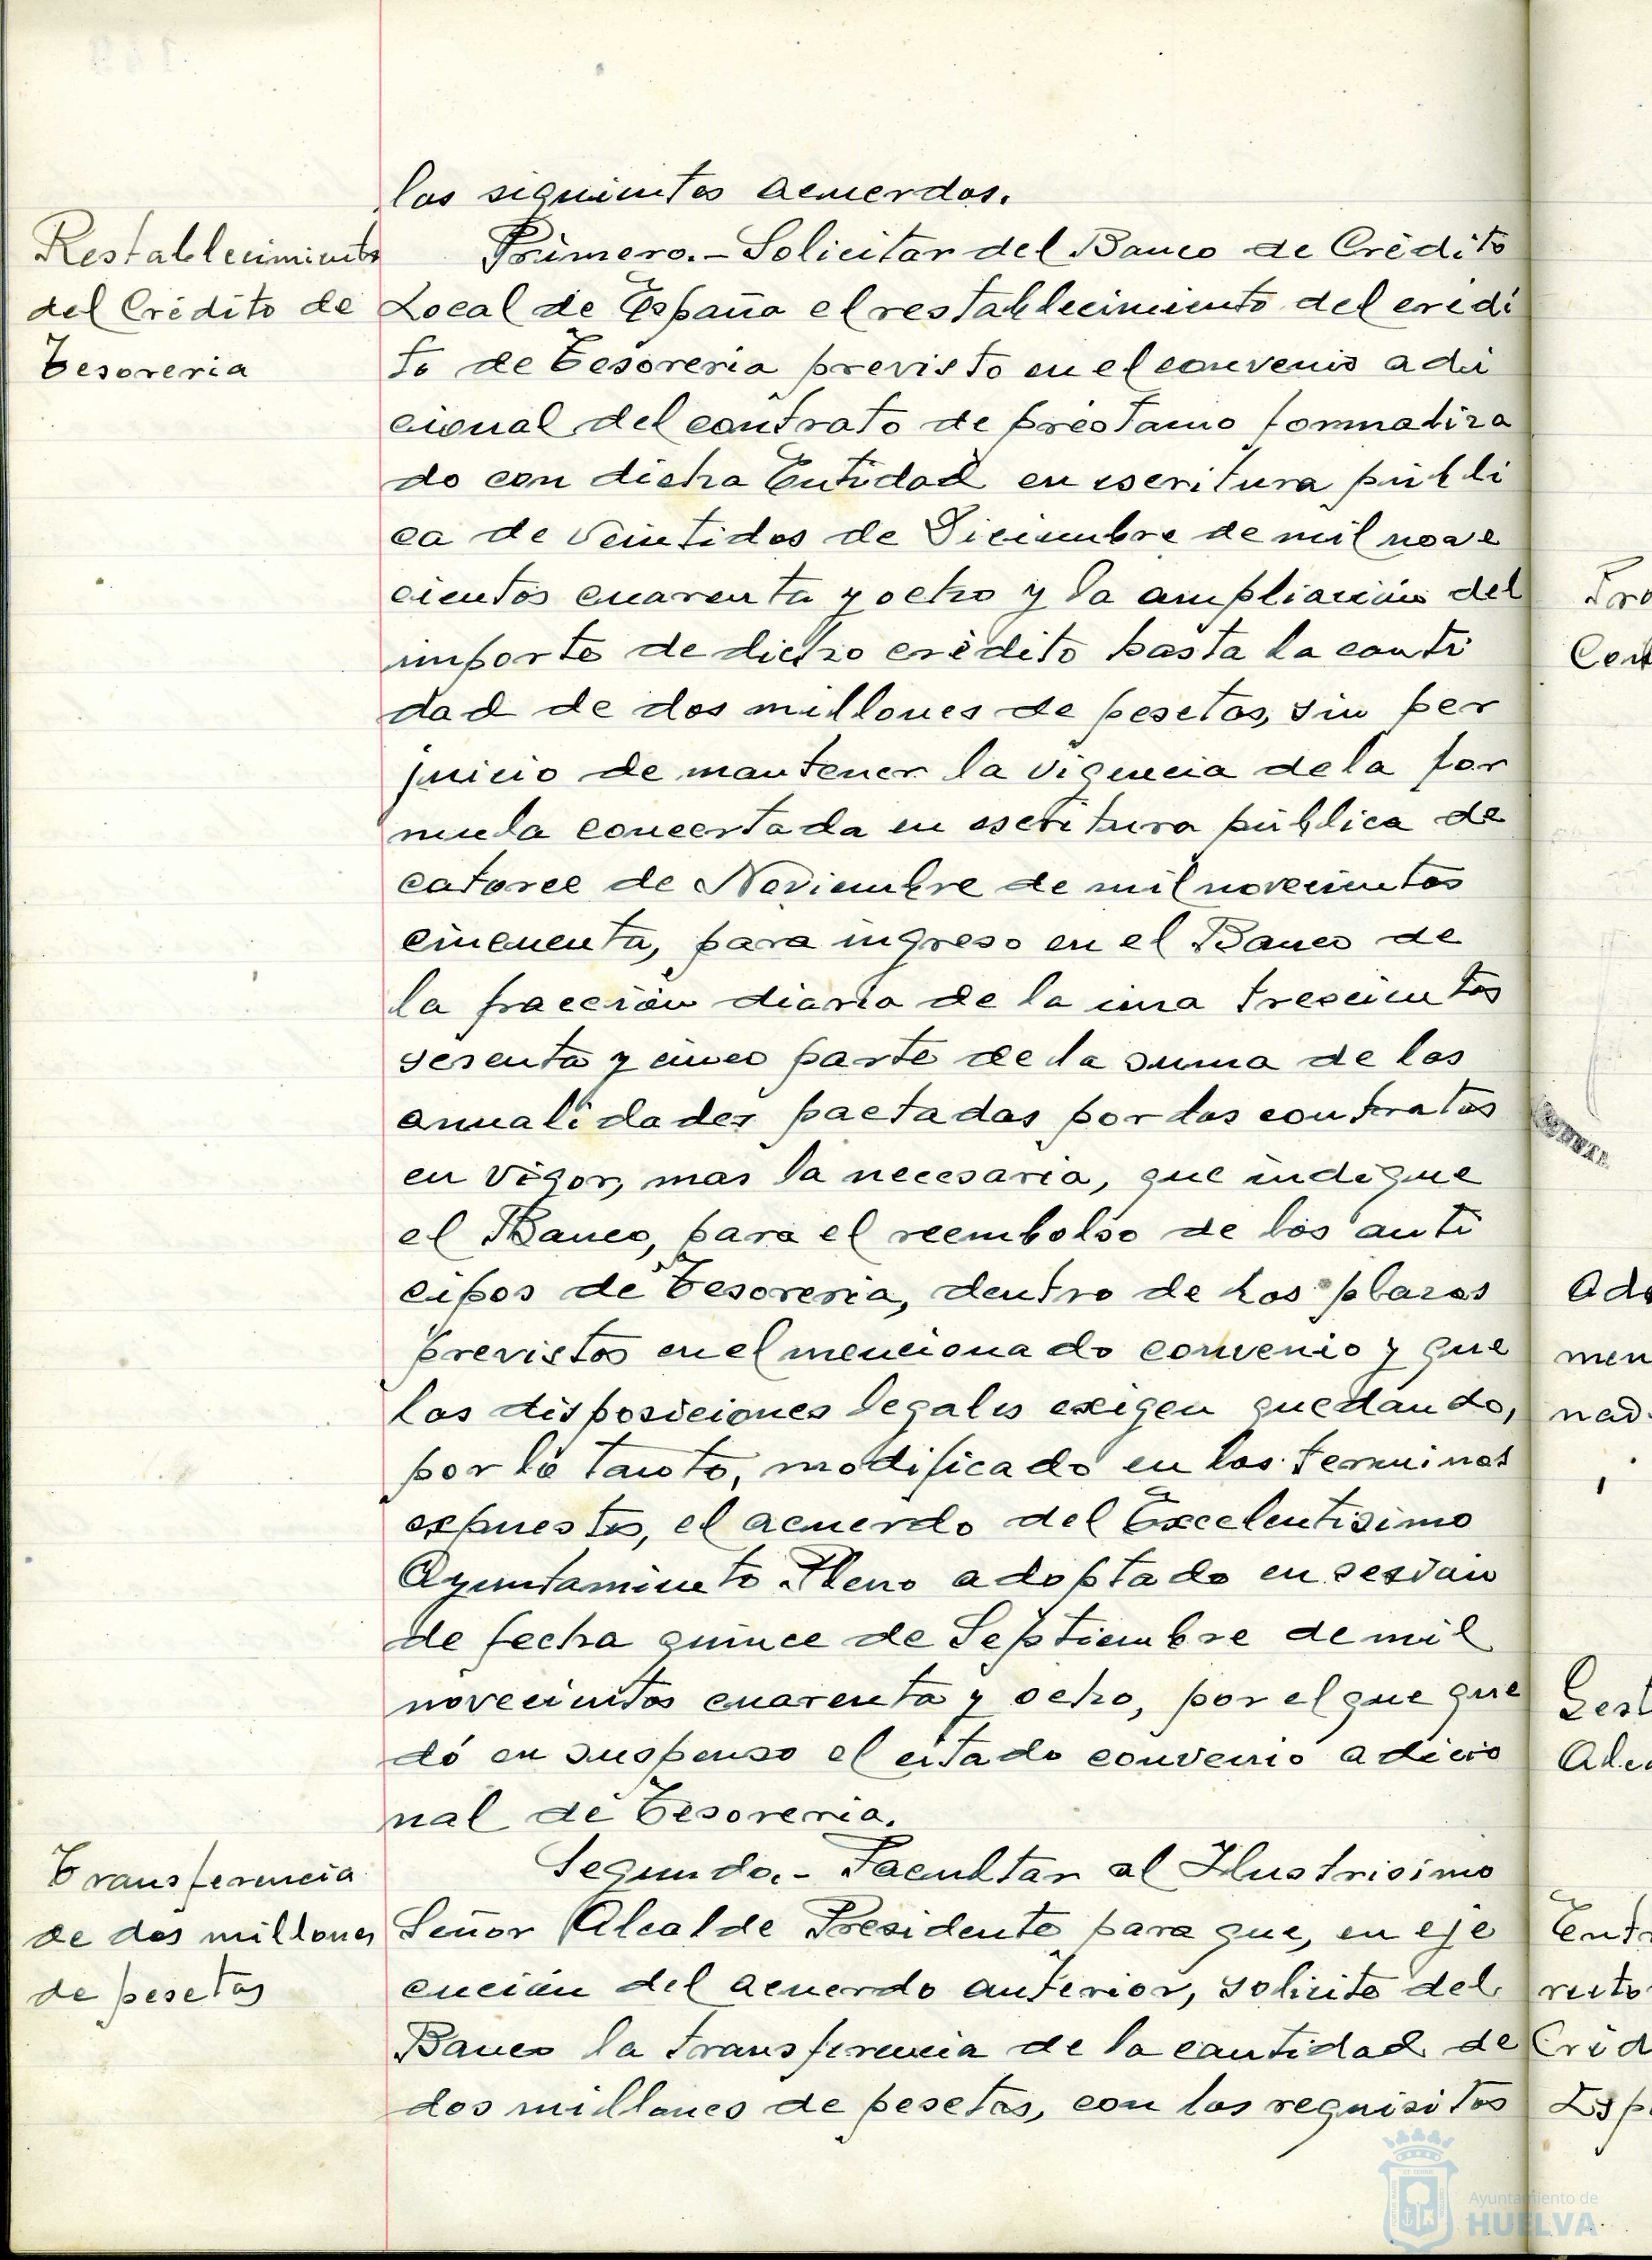 los siguientes acuerdos.
Restablecimiento
del Crédito de
Tesoreria
Primero.- Solicitar del Banco de Crédito
Local de España el restablecimiento del credi
to de Tesoreria previsto en el convenio adi
cional del contrato de préstamo formaliza
do con dicha Entidad en escritura públi
ca de veintidos de Diciembre de mil nove
cientos cuarenta y ocho y la ampliación del
importe de dicho crédito hasta la canti
dad de dos millones de pesetas, sin per
juicio de mantener la vigencia de la for
mula concertada en escritura pública de
catorce de Noviembre de mil novecientos
cincuenta, para ingreso en el Banco de
la fracción diaria de la una trescientos
sesenta y cinco parte de la suma de las
anualidades pactadas por los contratos
en vigor, mas la necesaria, que indique
el Banco, para el reembolso de los anti
cipos de Tesoreria, dentro de los plazos
previstos en el mencionado convenio y que
las disposiciones legales exigen quedando,
por lo tanto, modificado en los terminos
expuestos, el acuerdo del Excelentisimo
Ayuntamiento Pleno adoptado en sesión
de fecha quince de Septiembre de mil
novecientos cuarenta y ocho, por el que que
dó en suspenso el citado convenio adicio
nal de Tesoreria.
Transferencia
de dos millones
de pesetas
Segundo.- Facultar al Ilustrisimo
Señor Alcalde Presidente para que, en eje
cución del acuerdo anterior, solicite del
Banco la transferencia de la cantidad de
dos millones de pesetas, con los requisitos
Ayuntamiento de
HUELVA